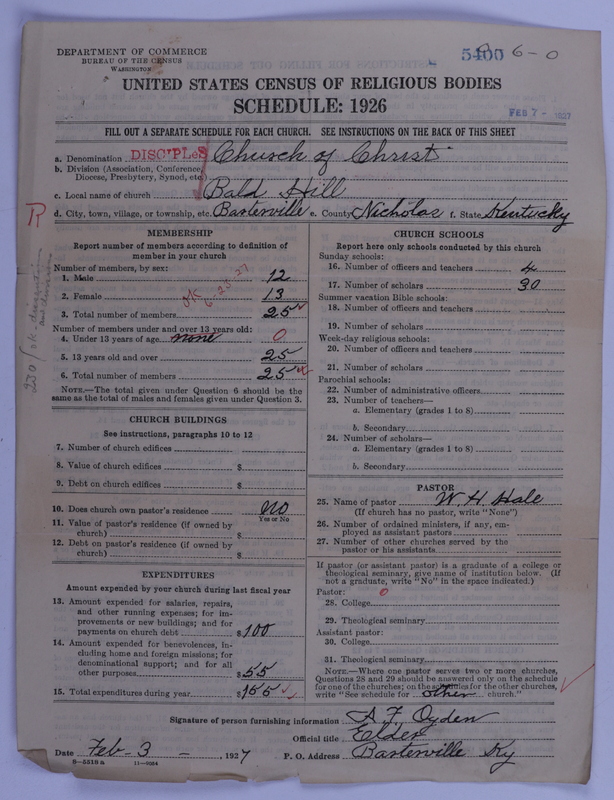 DEPARTMENT OF COMMERCE
BUREAU OF THE CENSUS
WASHINGTON
5400
6-0
UNITED STATES CENSUS OF RELIGIOUS BODIES
SCHEDULE: 1926
FEB 7 - 1927
FILL OUT A SEPARATE SCHEDULE FOR EACH CHURCH. SEE INSTRUCTIONS ON THE BACK OF THIS SHEET
a. Denomination DISCIPLES Church of Christ
b. Division (Association, Conference, Diocese, Presbytery, Synod, etc.)
c. Local name of church Bald Hill
d. City, town, village, or township, etc. Barterville e. County Nicholas f. State Kentucky
R
MEMBERSHIP
Report number of members according to definition of
member in your church
Number of members, by sex:
1. Male 12
2. Female 13
3. Total number of members 25
OK 6-23-27
Number of members under and over 13 years old:
4. Under 13 years of age none 0
5. 13 years old and over 25
6. Total number of members 25
NOTE.—The total given under Question 6 should be
same as the total of males and females given under Question 3.
CHURCH BUILDINGS
See instructions, paragraphs 10 to 12
7. Number of church edifices
8. Value of church edifices $
9. Debt on church edifices $
10. Does church own pastor's residence no
Yes or No
11. Value of pastor's residence (if owned by
church) $
12. Debt on pastor's residence (if owned by
church) $
EXPENDITURES
Amount expended by your church during last fiscal year
13. Amount expended for salaries, repairs,
and other running expenses; for im-
provements or new buildings; and for
payments on church debt $100
14. Amount expended for benevolences, in-
cluding home and foreign missions; for
denominational support; and for all
other purposes $55
15. Total expenditures during year $155
CHURCH SCHOOLS
Report here only schools conducted by this church
Sunday schools:
16. Number of officers and teachers 4
17. Number of scholars 30
Summer vacation Bible schools:
18. Number of officers and teachers
19. Number of scholars
Week-day religious schools:
20. Number of officers and teachers
21. Number of scholars
Parochial schools:
22. Number of administrative officers
23. Number of teachers—
a. Elementary (grades 1 to 8)
b. Secondary
24. Number of scholars—
a. Elementary (grades 1 to 8)
b. Secondary
PASTOR
25. Name of pastor W. H. Hale
(If church has no pastor, write "None")
26. Number of ordained ministers, if any, em-
ployed as assistant pastors
27. Number of other churches served by the
pastor or his assistants
If pastor (or assistant pastor) is a graduate of a college or
theological seminary, give name of institution below. (If
not a graduate, write "No" in the space indicated.)
Pastor: 0
28. College
29. Theological seminary
Assistant pastor:
30. College
31. Theological seminary
NOTE.—Where one pastor serves two or more churches,
Questions 28 and 29 should be answered only on the schedule
for one of the churches; on the schedules for the other churches,
write "See schedule for other church."
Signature of person furnishing information A F. Ogden
Official title Elder
Date Feb-3 -, 1927 P. O. Address Barterville Ky
8-5518a 11-9084